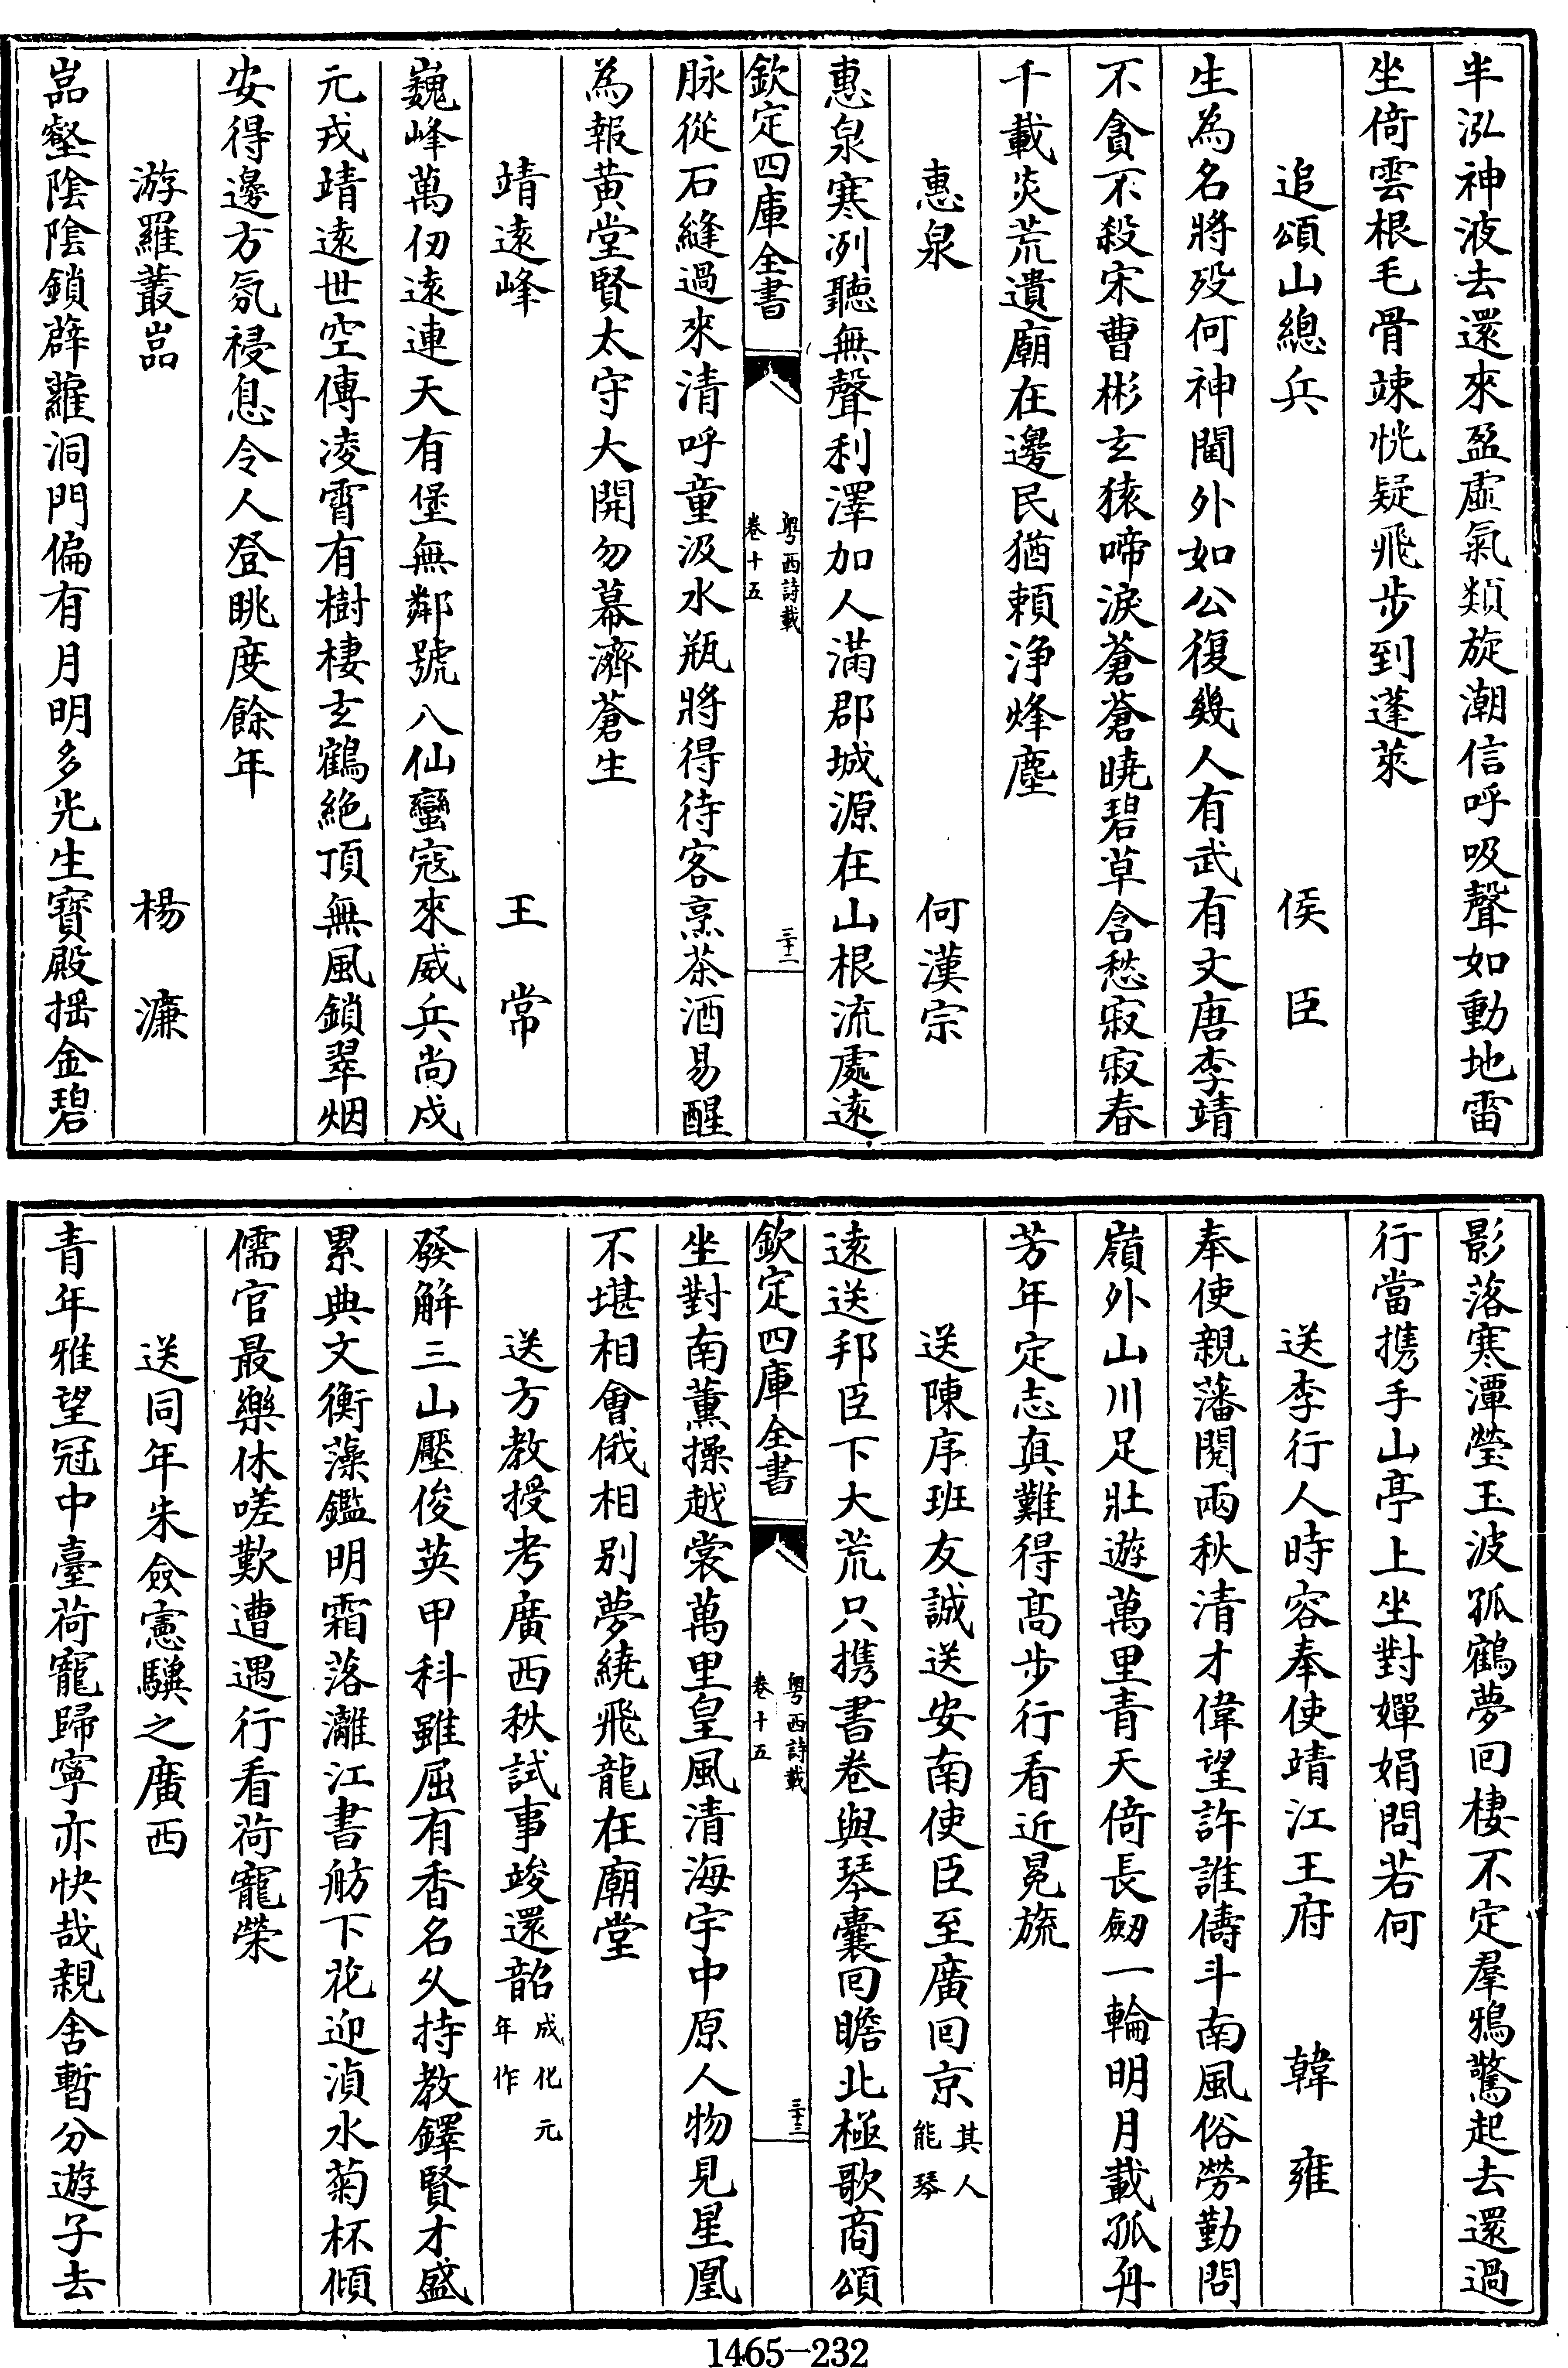 半泓神液去還來盈虛氣類旋潮信呼吸聲如動地雷
坐倚雲根毛骨竦恍疑飛步到蓬萊
追頌山總兵 侯臣
生為名將殁何神閫外如公復幾人有武有文唐李靖
不貪不殺宋曹彬玄猿啼淚蒼蒼曉碧草含愁寂寂春
千載炎荒遺廟在邊民猶賴淨烽塵
惠泉 何漢宗
惠泉寒冽聽無聲利澤加人滿郡城源在山根流處遠
欽定四庫全書 粵西詩載 卷十五 三十二
脉從石縫過來清呼童汲水瓶將得待客烹茶酒易醒
為報黃堂賢太守大開勿幕濟蒼生
靖遠峰 王常
巍峰萬仞遠連天有堡無鄰號八仙蠻寇來威兵尚戍
元戎靖遠世空傳凌霄有樹棲玄鶴絶頂無風鎖翠烟
安得邊方氛祲息令人登眺度餘年
游羅叢嵓 楊濂
嵓壑陰陰鎖薜蘿洞門偏有月明多光生寶殿揺金碧
影落寒潭瑩玉波孤鶴夢回棲不定羣鴉驚起去還過
行當携手山亭上坐對嬋娟問若何
送李行人時容奉使靖江王府 韓雍
奉使親藩閱兩秋清才偉望許誰儔斗南風俗勞勤問
嶺外山川足壯遊萬里青天倚長劒一輪明月載孤舟
芳年定志真難得髙步行看近冕旒
送陳序班友誠送安南使臣至廣回京 其人能琴
遠送邦臣下大荒只携書卷與琴囊回瞻北極歌商頌
欽定四庫全書 粵西詩載 卷十五 三十三
坐對南薰操越裳萬里皇風清海宇中原人物見星凰
不堪相會俄相別夢繞飛龍在廟堂
送方教授考廣西秋試事竣還韶 成化元年作
發解三山壓俊英甲科雖屈有香名久持教鐸賢才盛
累典文衡藻鑑明霜落灕江書舫下花迎湞水菊杯傾
儒官最樂休嗟歎遭遇行看荷寵榮
送同年朱僉憲驥之廣西
青年雅望冠中臺荷寵歸寧亦快哉親舍暫分遊子去
1465—232